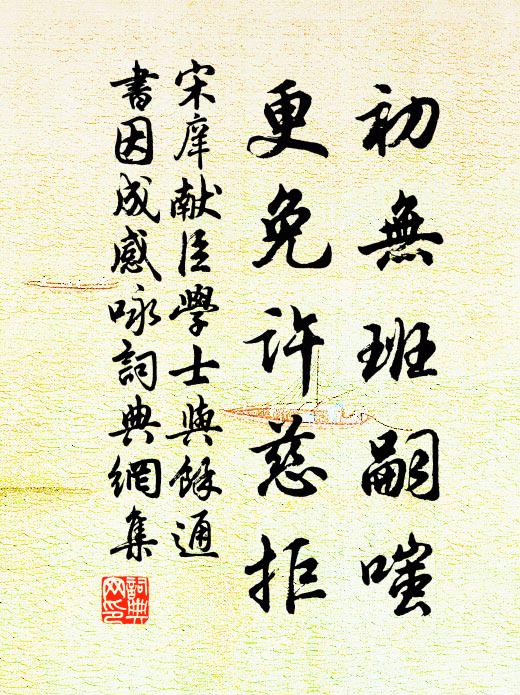 初無班嗣嗤
更免許慈拒
宋庠献臣學士與餘通
書因成感咏詞典網集
詞典网印